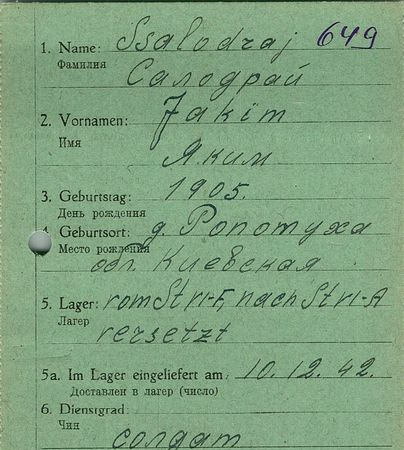 1. Name: Ssalodraj 649
Фамилия Салодрай
2. Vornamen: Jakim
Имя Яким
3. Geburtstag: 1905.
День рождения
4. Geburtsort: д. Ропотуха
Место рождения
обл. Киевская
5. Lager: vom Str I-F, nach Str I-A
Лагер versetzt
5a. Im Lager eingeliefert am: 10.12.42.
Доставлен в лагер (число)
6. Dienstgrad:
Чин солдат